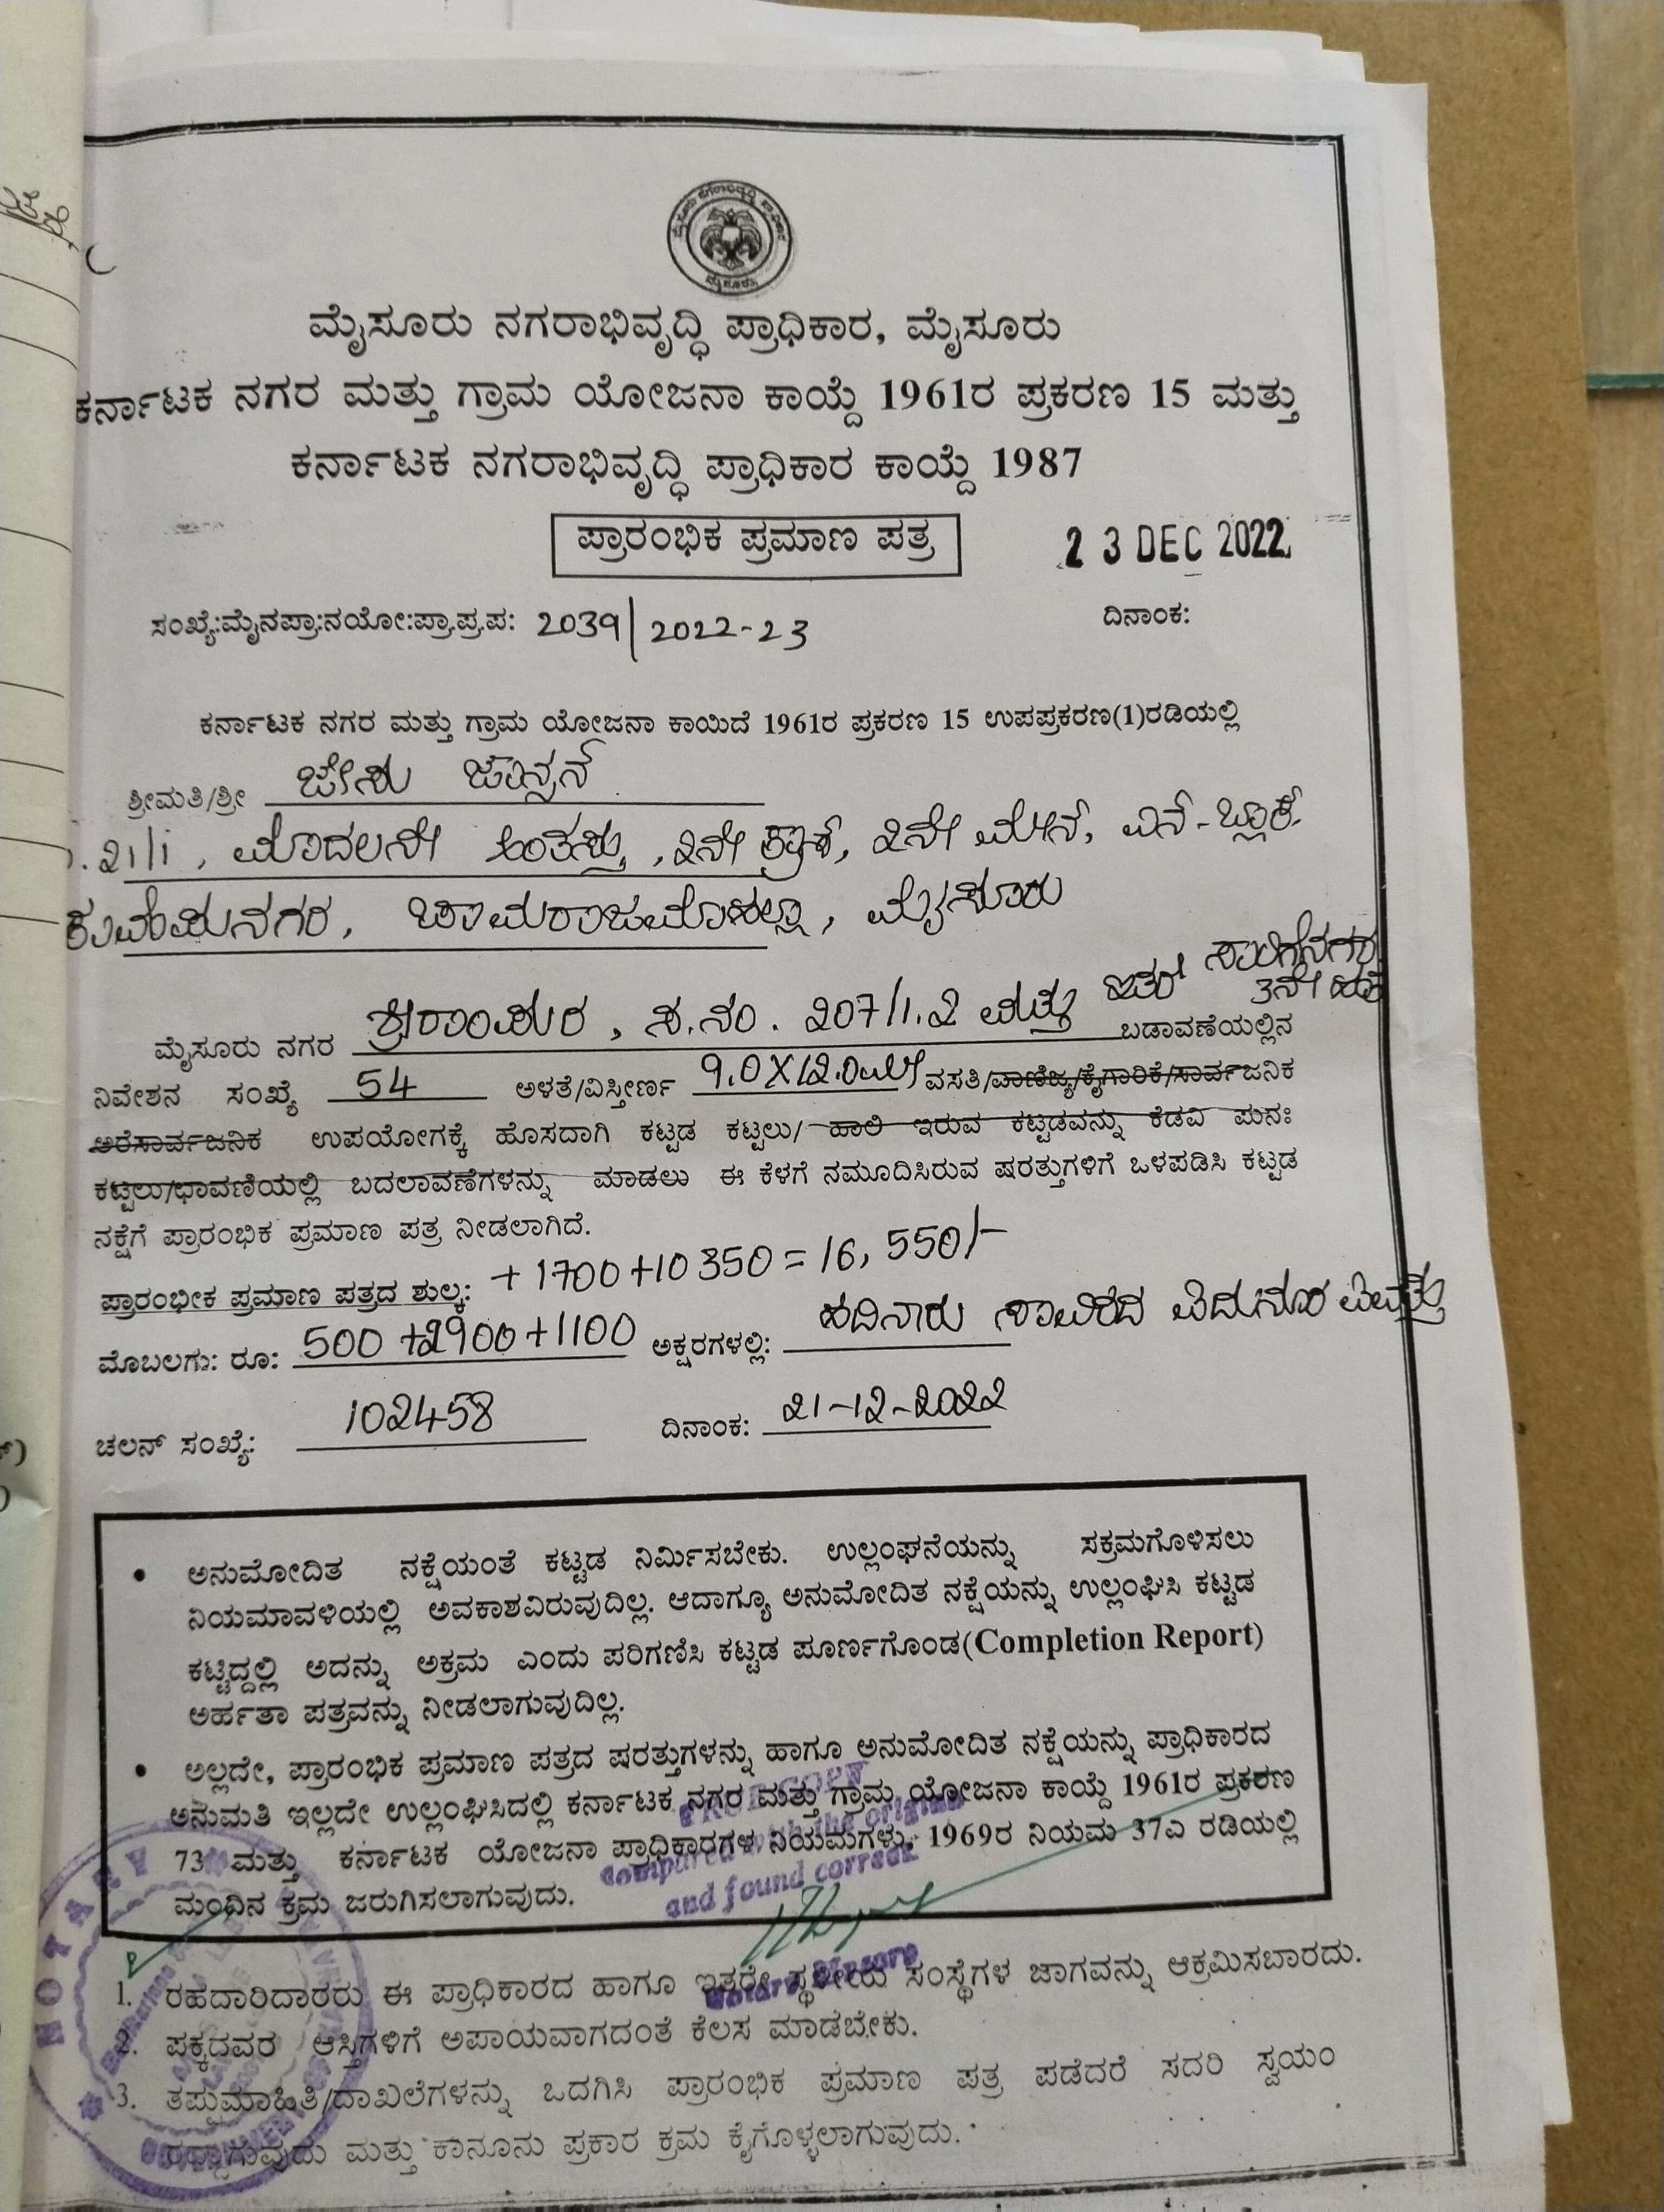 ಮೈಸೂರು ನಗರಾಭಿವೃದ್ಧಿ ಪ್ರಾಧಿಕಾರ, ಮೈಸೂರು
ಕರ್ನಾಟಕ ನಗರ ಮತ್ತು ಗ್ರಾಮ ಯೋಜನಾ ಕಾಯ್ದೆ 1961ರ ಪ್ರಕರಣ 15 ಮತ್ತು
ಕರ್ನಾಟಕ ನಗರಾಭಿವೃದ್ಧಿ ಪ್ರಾಧಿಕಾರ ಕಾಯ್ದೆ 1987
ಪ್ರಾರಂಭಿಕ ಪ್ರಮಾಣ ಪತ್ರ
23 DEC 2022
ಸಂಖ್ಯೆ:ಮೈನಪ್ರಾ:ನಯೋ:ಪ್ರಾ.ಪ್ರ.ಪ: 2039/2022-23 ದಿನಾಂಕ:
ಕರ್ನಾಟಕ ನಗರ ಮತ್ತು ಗ್ರಾಮ ಯೋಜನಾ ಕಾಯಿದೆ 1961ರ ಪ್ರಕರಣ 15 ಉಪಪ್ರಕರಣ(1)ರಡಿಯಲ್ಲಿ
ಶ್ರೀಮತಿ/ಶ್ರೀ ಜೇಸು ಜಾನ್ಸನ್
21/1, ಮೊದಲನೇ ಅಂತಸ್ತು, 2ನೇ ಕ್ರಾಸ್, 2ನೇ ಮೇನ್, ಎನ್-ಬ್ಲಾಕ್
ಕುವೆಂಪುನಗರ, ಚಾಮರಾಜಮೊಹಲ್ಲಾ, ಮೈಸೂರು
ಮೈಸೂರು ನಗರ ಶ್ರೀರಾಂಪುರ, ಸ.ನಂ. 207/1.2 ಮತ್ತು ಇತರೆ 3ನೇ ಹಂತ ಬಡಾವಣೆಯಲ್ಲಿನ
ನಿವೇಶನ ಸಂಖ್ಯೆ 54 ಅಳತೆ/ವಿಸ್ತೀರ್ಣ 9.0X12.0ಮೀ ವಸತಿ/ವಾಣಿಜ್ಯ/ಕೈಗಾರಿಕೆ/ಸಾರ್ವಜನಿಕ
ಅರೆಸಾರ್ವಜನಿಕ ಉಪಯೋಗಕ್ಕೆ ಹೊಸದಾಗಿ ಕಟ್ಟಡ ಕಟ್ಟಲು/ ಹಾಲಿ ಇರುವ ಕಟ್ಟಡವನ್ನು ಕೆಡವಿ ಪುನಃ
ಕಟ್ಟಲು/ಛಾವಣಿಯಲ್ಲಿ ಬದಲಾವಣೆಗಳನ್ನು ಮಾಡಲು ಈ ಕೆಳಗೆ ನಮೂದಿಸಿರುವ ಷರತ್ತುಗಳಿಗೆ ಒಳಪಡಿಸಿ ಕಟ್ಟಡ
ನಕ್ಷೆಗೆ ಪ್ರಾರಂಭಿಕ ಪ್ರಮಾಣ ಪತ್ರ ನೀಡಲಾಗಿದೆ.
ಪ್ರಾರಂಭೀಕ ಪ್ರಮಾಣ ಪತ್ರದ ಶುಲ್ಕ: +1700+10350=16,550/-
ಮೊಬಲಗು: ರೂ: 500+2900+1100 ಅಕ್ಷರಗಳಲ್ಲಿ: ಹದಿನಾರು ಸಾವಿರದ ಐದುನೂರ ಐವತ್ತು
ಚಲನ್ ಸಂಖ್ಯೆ: 102458 ದಿನಾಂಕ: 21-12-2022
• ಅನುಮೋದಿತ ನಕ್ಷೆಯಂತೆ ಕಟ್ಟಡ ನಿರ್ಮಿಸಬೇಕು. ಉಲ್ಲಂಘನೆಯನ್ನು ಸಕ್ರಮಗೊಳಿಸಲು
ನಿಯಮಾವಳಿಯಲ್ಲಿ ಅವಕಾಶವಿರುವುದಿಲ್ಲ. ಆದಾಗ್ಯೂ ಅನುಮೋದಿತ ನಕ್ಷೆಯನ್ನು ಉಲ್ಲಂಘಿಸಿ ಕಟ್ಟಡ
ಕಟ್ಟಿದ್ದಲ್ಲಿ ಅದನ್ನು ಅಕ್ರಮ ಎಂದು ಪರಿಗಣಿಸಿ ಕಟ್ಟಡ ಪೂರ್ಣಗೊಂಡ(Completion Report)
ಅರ್ಹತಾ ಪತ್ರವನ್ನು ನೀಡಲಾಗುವುದಿಲ್ಲ.
• ಅಲ್ಲದೇ, ಪ್ರಾರಂಭಿಕ ಪ್ರಮಾಣ ಪತ್ರದ ಷರತ್ತುಗಳನ್ನು ಹಾಗೂ ಅನುಮೋದಿತ ನಕ್ಷೆಯನ್ನು ಪ್ರಾಧಿಕಾರದ
ಅನುಮತಿ ಇಲ್ಲದೇ ಉಲ್ಲಂಘಿಸಿದಲ್ಲಿ ಕರ್ನಾಟಕ ನಗರ ಮತ್ತು ಗ್ರಾಮ ಯೋಜನಾ ಕಾಯ್ದೆ 1961ರ ಪ್ರಕರಣ
73 ಮತ್ತು ಕರ್ನಾಟಕ ಯೋಜನಾ ಪ್ರಾಧಿಕಾರಗಳ ನಿಯಮಗಳು, 1969ರ ನಿಯಮ 37ಎ ರಡಿಯಲ್ಲಿ
ಮುಂದಿನ ಕ್ರಮ ಜರುಗಿಸಲಾಗುವುದು.
TRUE COPY
Compared with the original
and found correct
Notary Mysore
NOTARY
1. ರಹದಾರಿದಾರರು ಈ ಪ್ರಾಧಿಕಾರದ ಹಾಗೂ ಇತರೇ ಸ್ಥಳೀಯ ಸಂಸ್ಥೆಗಳ ಜಾಗವನ್ನು ಆಕ್ರಮಿಸಬಾರದು.
2. ಪಕ್ಕದವರ ಆಸ್ತಿಗಳಿಗೆ ಅಪಾಯವಾಗದಂತೆ ಕೆಲಸ ಮಾಡಬೇಕು.
3. ತಪ್ಪುಮಾಹಿತಿ/ದಾಖಲೆಗಳನ್ನು ಒದಗಿಸಿ ಪ್ರಾರಂಭಿಕ ಪ್ರಮಾಣ ಪತ್ರ ಪಡೆದರೆ ಸದರಿ ಸ್ವಯಂ
ರದ್ದಾಗುವುದು ಮತ್ತು ಕಾನೂನು ಪ್ರಕಾರ ಕ್ರಮ ಕೈಗೊಳ್ಳಲಾಗುವುದು.